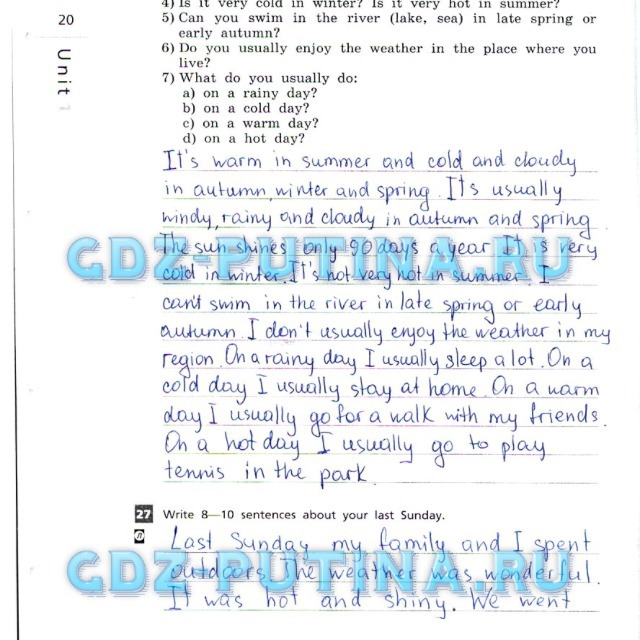 4) Is it very cold in winter? Is it very hot in summer?
20
5) Can you swim in the river (lake, sea) in late spring or
early autumn?
6) Do you usually enjoy the weather in the place where you
live?
Unit 1
7) What do you usually do:
a) on a rainy day?
b) on a cold day?
c) on a warm day?
d) on a hot day?
It's warm in summer and cold and cloudy
in autumn, winter and spring. It's usually
windy, rainy and cloudy in autumn and spring
The sun shines only 90 days a year. It is very
cold in winter. It's not very hot in summer. I
GDZ-PUTINA.RU
can't swim in the river in late spring or early
autumn. I don't usually enjoy the weather in my
region. On a rainy day I usually sleep a lot. On a
cold day I usually stay at home. On a warm
day I usually go for a walk with my friends.
On a hot day I usually go to play
tennis in the park.
27 Write 8—10 sentences about your last Sunday.
Last Sunday my family and I spent
outdoors. The weather was wonderful.
GDZ-PUTINA.RU
It was hot and shiny. We went